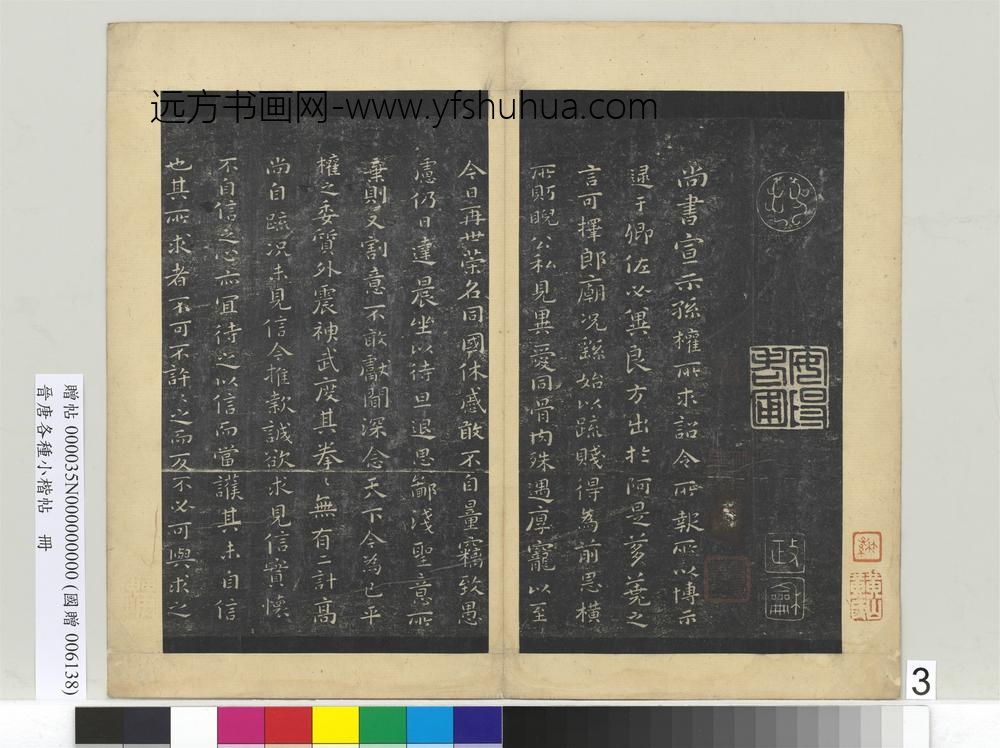 远方书画网-www.yfshuhua.com
尚書宣示孫權所求詔令所報所以博示
逮于卿佐必冀良方出於阿是芻蕘之
言可擇郎廟況繇始以疏賤得為前恩橫
所盼睨公私見異愛同骨肉殊遇厚寵以至
今日再世榮名同國休慼敢不自量竊致愚
慮仍日達晨坐以待旦退思鄙淺聖意所
棄則又割意不敢獻聞深念天下今為已平
權之委質外震神武度其拳〻無有二計高
尚自疏況未見信今推款誠欲求見信實懷
不自信之心亦宜待之以信而當護其未自信
也其所求者不可不許〻之而反不必可與求之
贈帖 000035N000000000 (國贈 006138)
晉唐各種小楷帖 冊
3